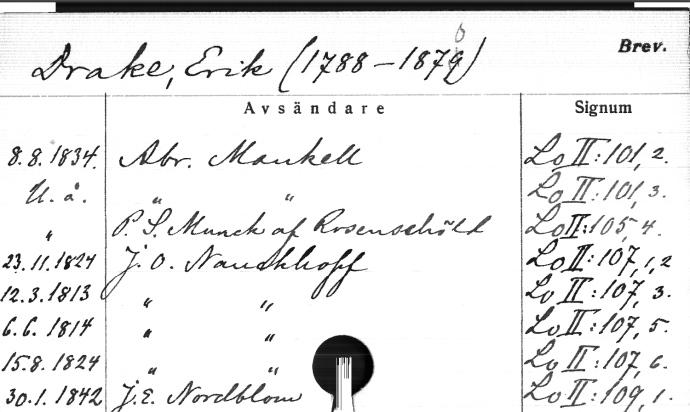 Drake, Erik (1788-1879) 0
Brev.
Avsändare Signum
8.8.1834. Abr. Mankell Lo II:101, 2.
U. å. " " Lo II:101, 3.
" P. S. Munck af Rosenschöld Lo II:105, 4.
23.11.1824 J. O. Nauckhoff Lo II:107, 1, 2
12.3.1813 " " Lo II:107, 3.
6.6.1814 " " Lo II:107, 5.
15.8.1824 " " Lo II:107, 6.
30.1.1842 J. E. Nordblom Lo II:109, 1.